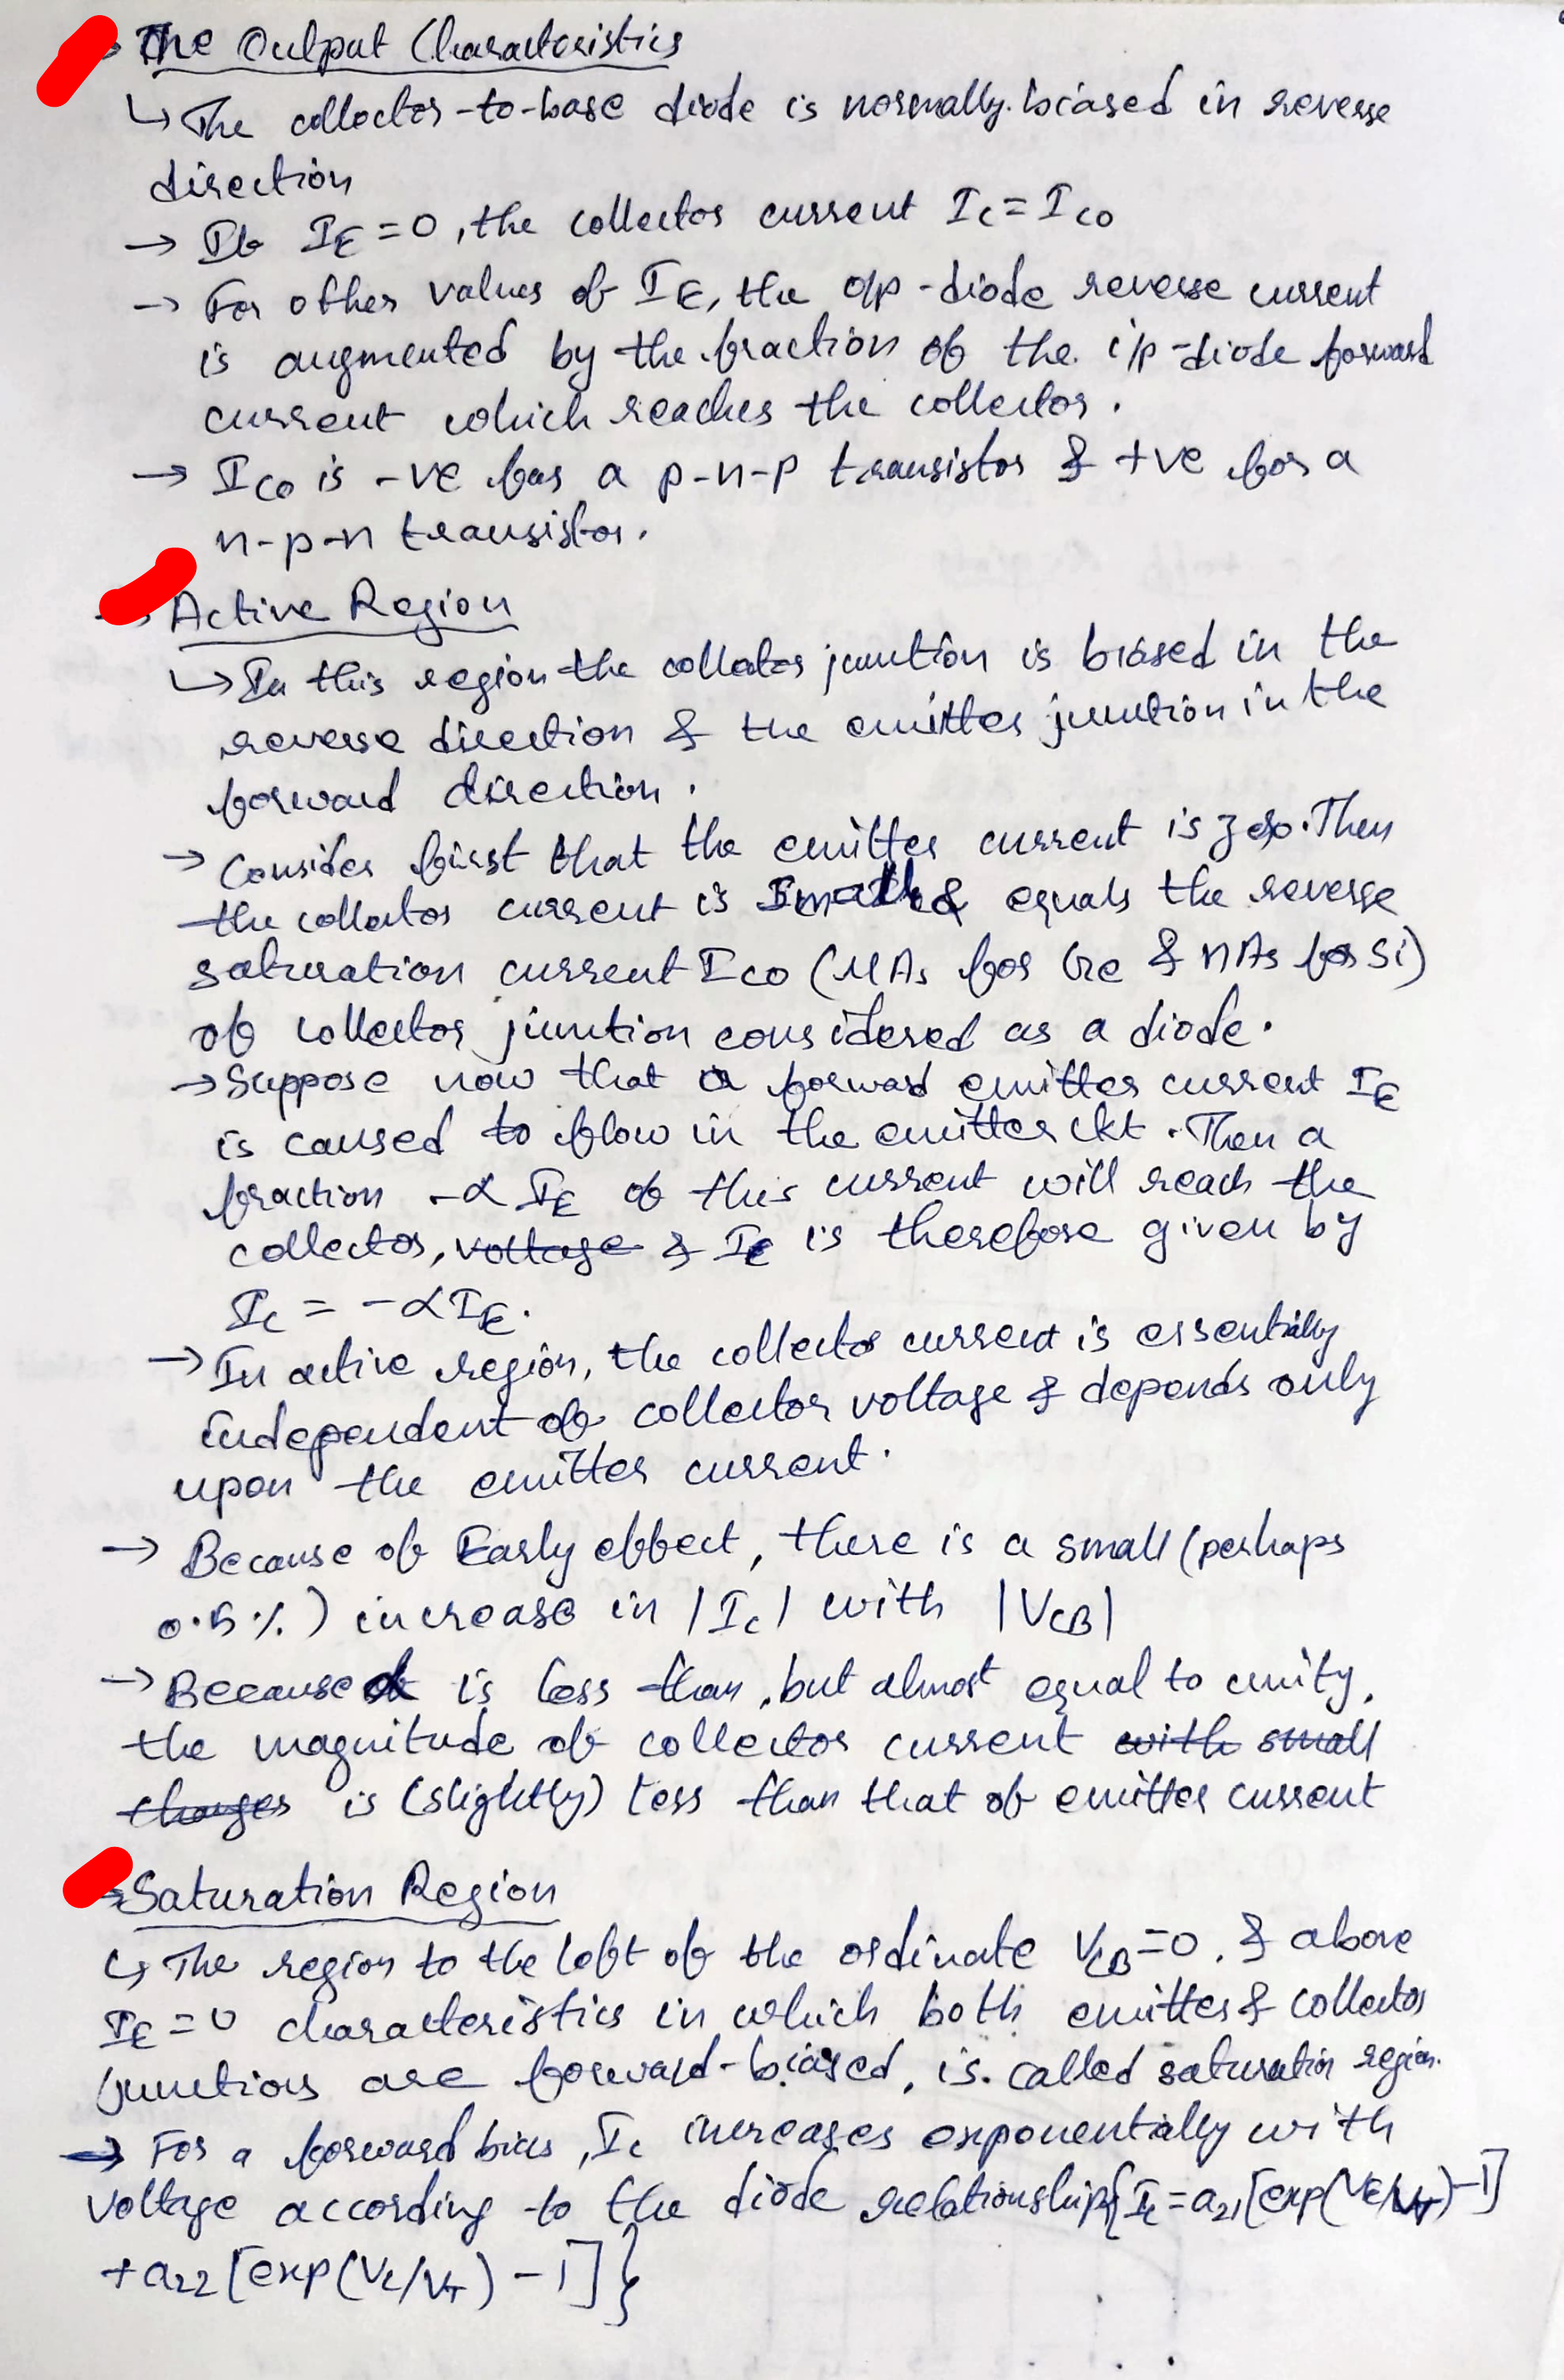 → The Output Characteristics
↳ The collector-to-base diode is normally biased in reverse
direction
→ If I_E = 0, the collector current I_C = I_CO
→ For other values of I_E, the o/p-diode reverse current
is augmented by the fraction of the i/p-diode forward
current which reaches the collector.
→ I_CO is -ve for a p-n-p transistor & +ve for a
n-p-n transistor.
→ Active Region
↳ In this region the collector junction is biased in the
reverse direction & the emitter junction in the
forward direction.
→ Consider first that the emitter current is zero. Then
the collector current is small & equals the reverse
saturation current I_CO (μAs for Ge & nAs for Si)
of collector junction considered as a diode.
→ Suppose now that a forward emitter current I_E
is caused to flow in the emitter ckt. Then a
fraction -α I_E of this current will reach the
collector, voltage & I_C is therefore given by
I_C = -αI_E.
→ In active region, the collector current is essentially
independent of collector voltage & depends only
upon the emitter current.
→ Because of Early effect, there is a small (perhaps
0.5%) increase in |I_C| with |V_CB|
→ Because α is less than, but almost equal to unity,
the magnitude of collector current with small
changes is (slightly) less than that of emitter current
→ Saturation Region
↳ The region to the left of the ordinate V_CB = 0, & above
I_E = 0 characteristics in which both emitter & collector
junctions are forward-biased, is called saturation region.
→ For a forward bias, I_C increases exponentially with
voltage according to the diode relationship {I_C = a_21[exp(V_E/V_T) - 1]
+ a_22 [exp(V_C/V_T) - 1]}